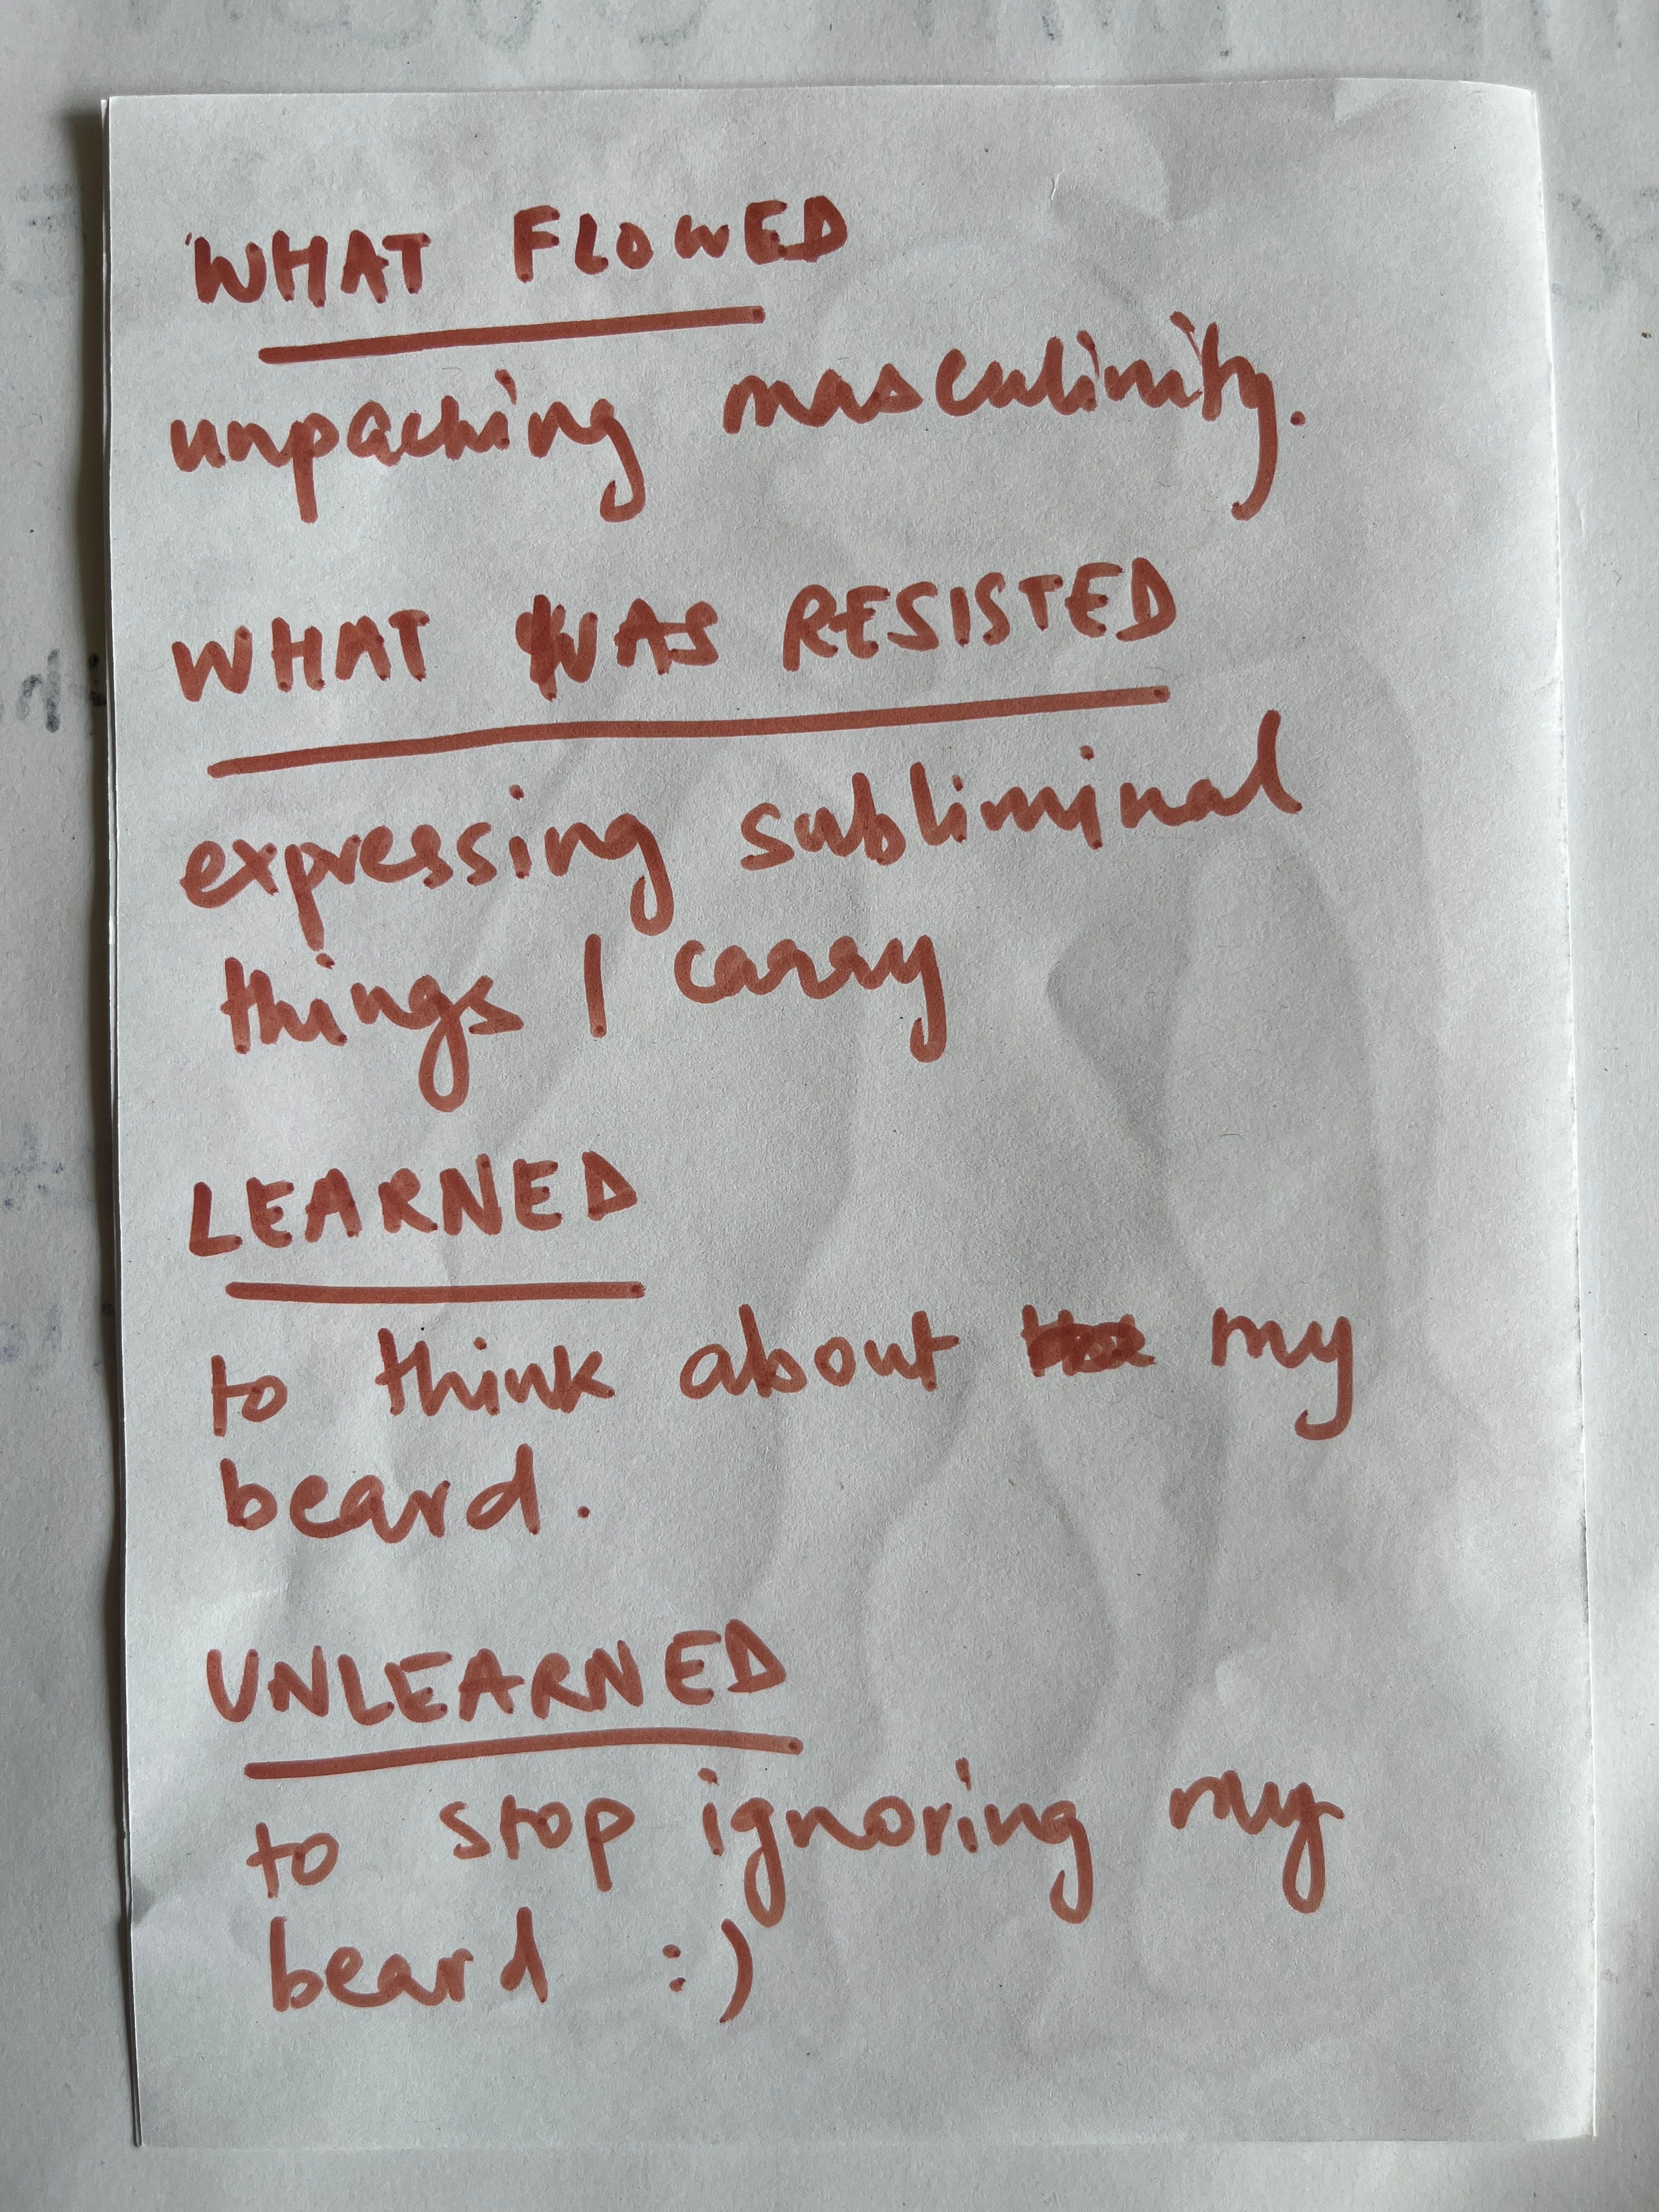 WHAT FLOWED
unpacking masculinity.
WHAT WAS RESISTED
expressing subliminal
things I carry
LEARNED
to think about my
beard.
UNLEARNED
to stop ignoring my
beard :)